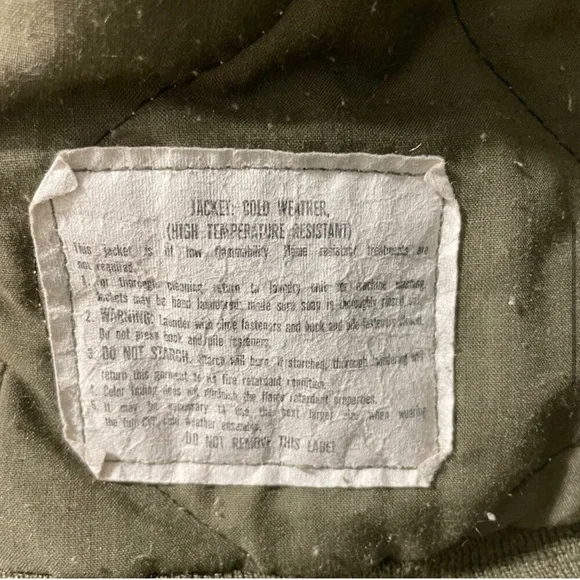 JACKET: COLD WEATHER,
(HIGH TEMPERATURE RESISTANT)
This jacket is of low flammability. Flame resistant treatments are
not required.
1. For thorough cleaning return to laundry unit for machine washing.
Jackets may be hand laundered; make sure soap is thoroughly rinsed out.
2. WARNING: Launder with slide fasteners and hook and pile fasteners closed.
Do not press hook and pile fasteners.
3. DO NOT STARCH, starch will burn. If starched, thorough laundering will
return this garment to its fire retardant condition.
4. Color fading does not diminish the flame retardant properties.
5. It may be necessary to use the next larger size when wearing
the full CVC cold weather ensemble.
DO NOT REMOVE THIS LABEL